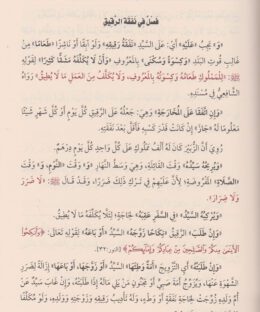 فصل في نفقة الرقيق
«وَ» تَجِبُ «عَلَيْهِ» أَيْ: عَلَى السَّيِّدِ «نَفَقَةُ رَقِيقِهِ» وَلَوْ آبِقًا أَوْ نَاشِزًا «طَعَامًا» مِنْ
غَالِبِ قُوتِ الْبَلَدِ «وَكِسْوَةً وَسُكْنَى» بِالْمَعْرُوفِ «وَأَنْ لَا يُكَلِّفَهُ مُشِقًّا كَثِيرًا» لِقَوْلِهِ
ﷺ: «لِلْمَمْلُوكِ طَعَامُهُ وَكِسْوَتُهُ بِالْمَعْرُوفِ، وَلَا يُكَلَّفُ مِنَ الْعَمَلِ مَا لَا يُطِيقُ» رَوَاهُ
الشَّافِعِيُّ فِي مُسْنَدِهِ.
«وَإِنِ اتَّفَقَا عَلَى الْمُخَارَجَةِ» وَهِيَ: جَعْلُهُ عَلَى الرَّقِيقِ كُلَّ يَوْمٍ أَوْ كُلَّ شَهْرٍ شَيْئًا
مَعْلُومًا لَهُ «جَازَ» إِنْ كَانَتْ قَدْرَ كَسْبِهِ فَأَقَلَّ بَعْدَ نَفَقَتِهِ.
رُوِيَ أَنَّ الزُّبَيْرَ كَانَ لَهُ أَلْفُ مَمْلُوكٍ عَلَى كُلِّ وَاحِدٍ كُلَّ يَوْمٍ دِرْهَمٌ.
«وَيُرِيحُهُ سَيِّدُهُ «وَقْتَ الْقَائِلَةِ» وَهِيَ: وَسَطُ النَّهَارِ «وَ» وَقْتَ «النَّوْمِ، وَ» وَقْتَ
«الصَّلَاةِ» الْمَفْرُوضَةِ؛ لِأَنَّ عَلَيْهِمْ فِي تَرْكِ ذَلِكَ ضَرَرًا، وَقَدْ قَالَ ﷺ: «لَا ضَرَرَ
وَلَا ضِرَارَ».
«وَيُرْكِبُهُ» السَّيِّدُ «فِي السَّفَرِ عُقْبَةً» لِحَاجَةٍ؛ لِئَلَّا يُكَلِّفَهُ مَا لَا يُطِيقُ.
«وَإِنْ طَلَبَ» الرَّقِيقُ «نِكَاحًا زَوَّجَهُ» السَّيِّدُ «أَوْ بَاعَهُ» لِقَوْلِهِ تَعَالَى: ﴿وَأَنْكِحُوا
الْأَيَامَى مِنْكُمْ وَالصَّالِحِينَ مِنْ عِبَادِكُمْ وَإِمَائِكُمْ﴾ [النور: ٣٢].
«وَإِنْ طَلَبَتْهُ» أَيِ: التَّزْوِيجَ «أَمَةٌ وَطِئَهَا» السَّيِّدُ «أَوْ زَوَّجَهَا، أَوْ بَاعَهَا» إِزَالَةً لِضَرَرِ
الشَّهْوَةِ عَنْهَا، وَيُزَوِّجُ أَمَةَ صَبِيٍّ أَوْ مَجْنُونٍ مَنْ يَلِي مَالَهُ إِذَا طَلَبَتْهُ، وَإِنْ غَابَ سَيِّدٌ عَنْ
أُمِّ وَلَدِهِ زُوِّجَتْ لِحَاجَةِ نَفَقَةٍ أَوْ وَطْءٍ، وَلَهُ تَأْدِيبُ رَقِيقِهِ وَزَوْجَتِهِ وَوَلَدِهِ، وَلَوْ مُكَلَّفًا